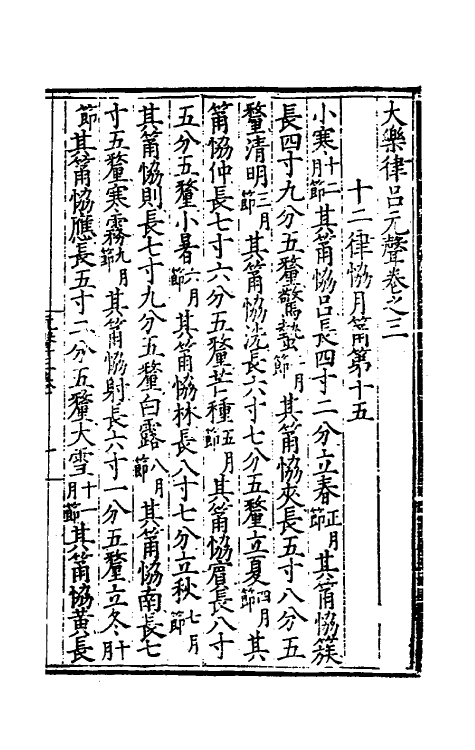 大樂律呂元聲卷之三
十二律恊月筩第十五
小寒十二月節其筩恊呂長四寸二分立春正月節其筩恊簇
長四寸九分五釐驚蟄二月節其筩恊夾長五寸八分五
釐清明三月節其筩恊洗長六寸七分五釐立夏四月節其
筩恊仲長七寸六分五釐芒種五月節其筩恊賓長八寸
五分五釐小暑六月節其筩恊林長八寸七分立秋七月節
其筩恊則長七寸九分五釐白露八月節其筩恊南長七
寸五釐寒露九月節其筩恊射長六寸一分五釐立冬十月
節其筩恊應長五寸二分五釐大雪十一月節其筩恊黃長